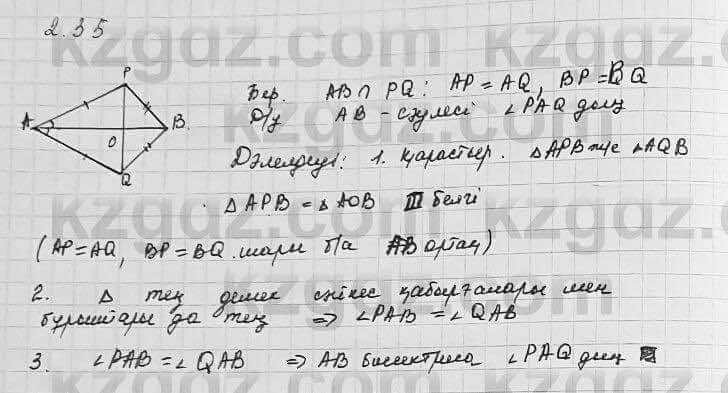 2.35
P
A
B
O
Q
Бер. AB ∩ PQ: AP = AQ, BP = BQ
Д/у AB – сәулесі ∠PAQ дың
Дәлелдеуі: 1. қарастыр. △APB және △AQB
△APB = △AOB III белгі
(AP = AQ, BP = BQ шарт б/ша AB ортақ)
2. △ тең демек сәйкес қабырғалары мен
бұрыштары да тең ⇒ ∠PAB = ∠QAB
3. ∠PAB = ∠QAB ⇒ AB биссектриса ∠PAQ дың
kzgdz.com